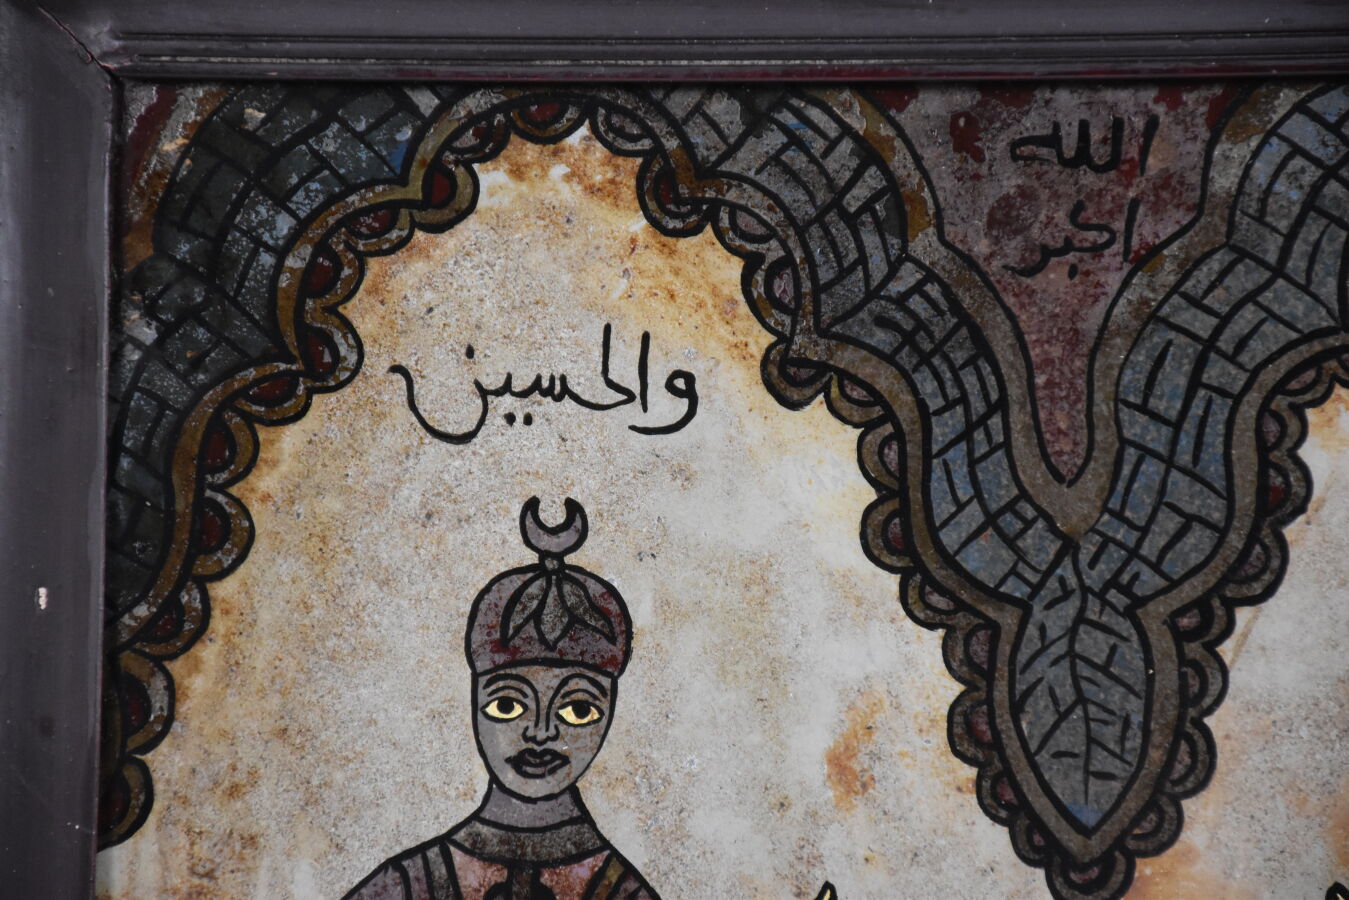 الله
اكبر
والحسين